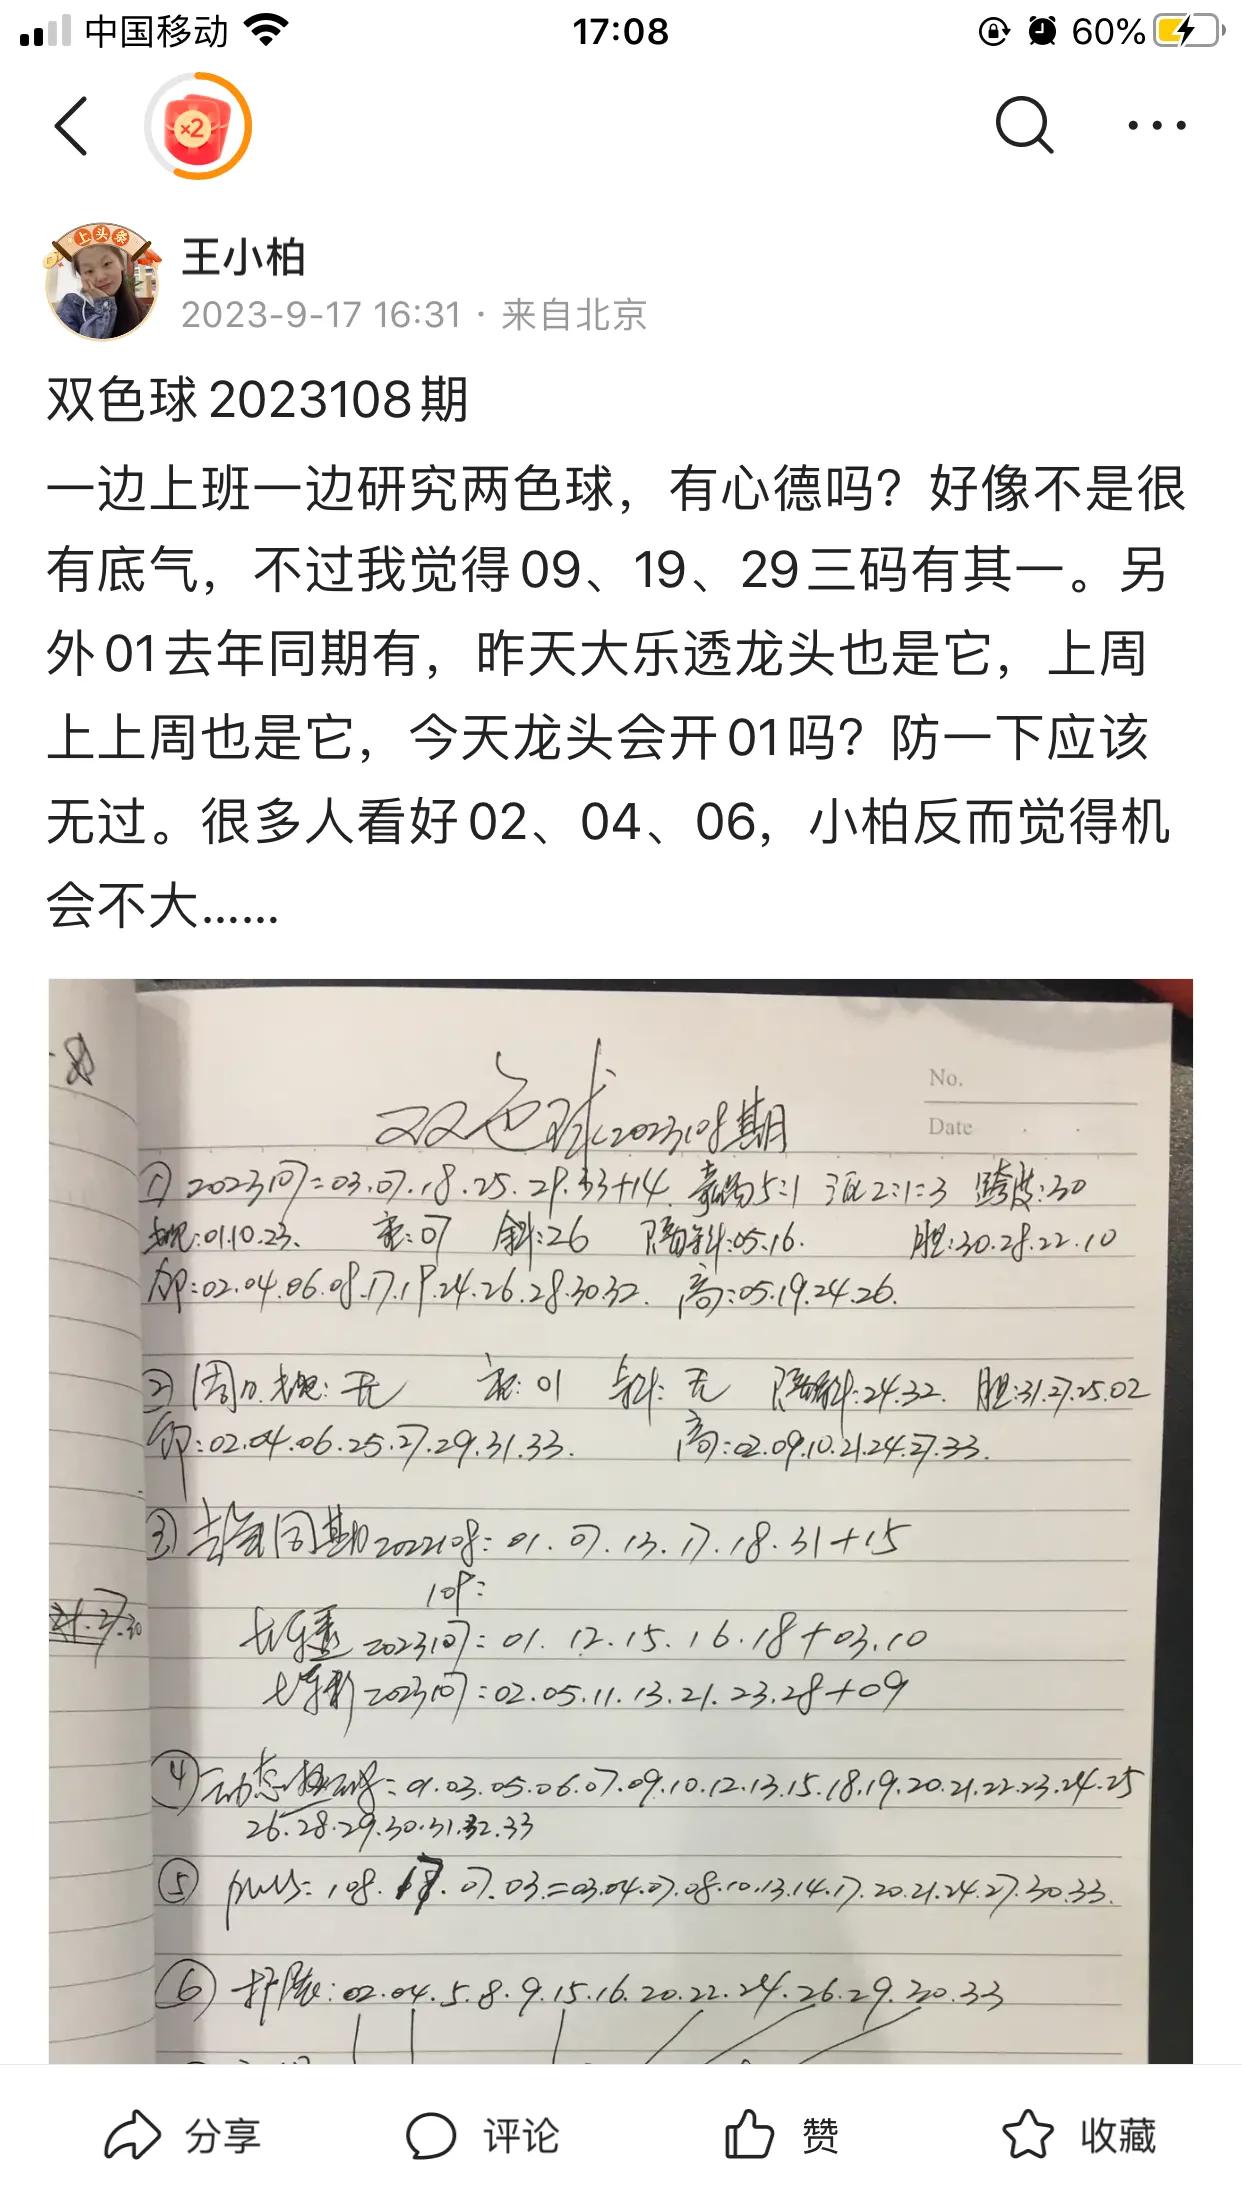 中国移动 17:08 60%
×2
上头条
王小柏
2023-9-17 16:31 · 来自北京
双色球2023108期
一边上班一边研究两色球，有心德吗？好像不是很
有底气，不过我觉得09、19、29三码有其一。另
外01去年同期有，昨天大乐透龙头也是它，上周
上上周也是它，今天龙头会开01吗？防一下应该
无过。很多人看好02、04、06，小柏反而觉得机
会不大……
No.
Date
双色球2023108期
① 2023107=03.07.18.25.29.33+14 5:1 2:1:3 跨度:30
:01.10.23. 重:07 斜:26 隔斜:05.16. 胆:30.28.22.10
:02.04.06.08.17.19.24.26.28.30.32. 高:05.19.24.26.
② 周日. : 无 重: 01 斜: 无 隔斜:24.32. 胆:31.27.25.02
:02.04.06.25.27.29.31.33. 高:02.09.10.21.24.27.33.
③ 去年同期2022108: 01.07.13.17.18.31+15
109:
大乐透 2023107: 01.12.15.16.18+03.10
七乐彩 2023107:02.05.11.13.21.23.28+09
④ 动态: 01.03.05.06.07.09.10.12.13.15.18.19.20.21.22.23.24.25
26.28.29.30.31.32.33
⑤ 108. 17. 07.03=03.04.07.08.10.13.14.17.20.21.24.27.30.33.
⑥ :02.04.5.8.9.15.16.20.22.24.26.29.30.33
21.27.30
分享 评论 赞 收藏